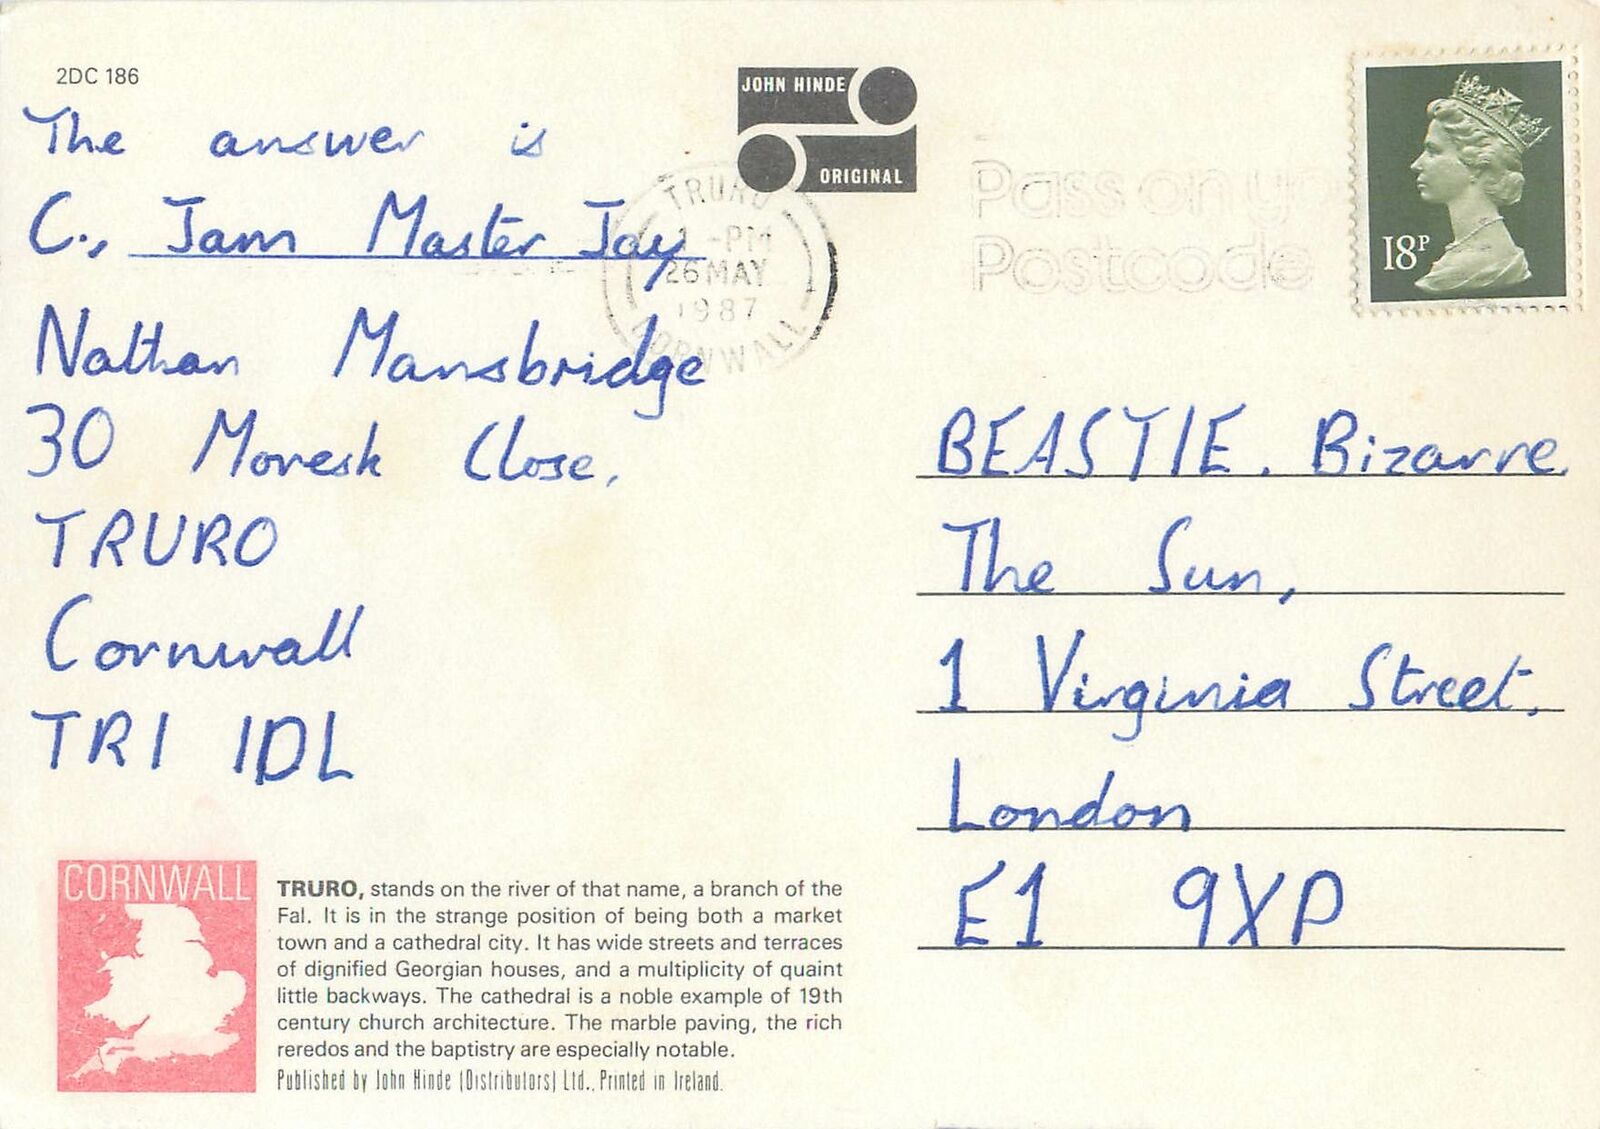 2DC 186
The answer is
C., Jam Master Jay
Nathan Mansbridge
30 Moresk Close,
TRURO
Cornwall
TR1 1DL
CORNWALL
TRURO, stands on the river of that name, a branch of the
Fal. It is in the strange position of being both a market
town and a cathedral city. It has wide streets and terraces
of dignified Georgian houses, and a multiplicity of quaint
little backways. The cathedral is a noble example of 19th
century church architecture. The marble paving, the rich
reredos and the baptistry are especially notable.
Published by John Hinde (Distributors) Ltd., Printed in Ireland.
JOHN HINDE
ORIGINAL
TRURO
-PM
26 MAY
1987
CORNWALL
Pass on yo
Postcode
18P
BEASTIE. Bizarre,
The Sun,
1 Virginia Street,
London
E1 9XP